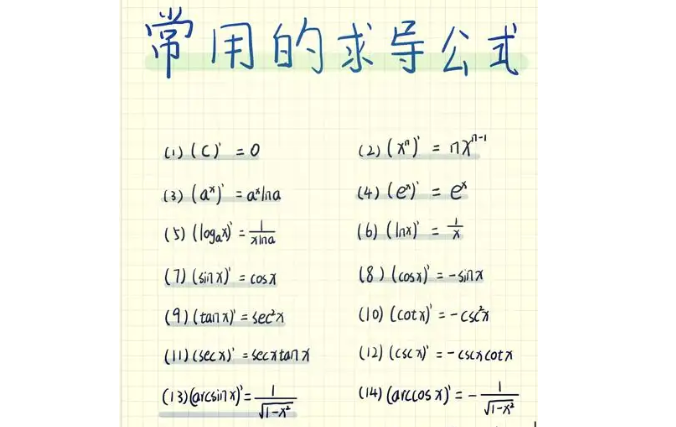 常用的求导公式
(1) (C)' = 0 (2) (xⁿ)' = nxⁿ⁻¹
(3) (aˣ)' = aˣlna (4) (eˣ)' = eˣ
(5) (logₐx)' = 1/(xlna) (6) (lnx)' = 1/x
(7) (sinx)' = cosx (8) (cosx)' = -sinx
(9) (tanx)' = sec²x (10) (cotx)' = -csc²x
(11) (secx)' = secxtanx (12) (cscx)' = -cscxcotx
(13) (arcsinx)' = 1/√(1-x²) (14) (arccosx)' = -1/√(1-x²)